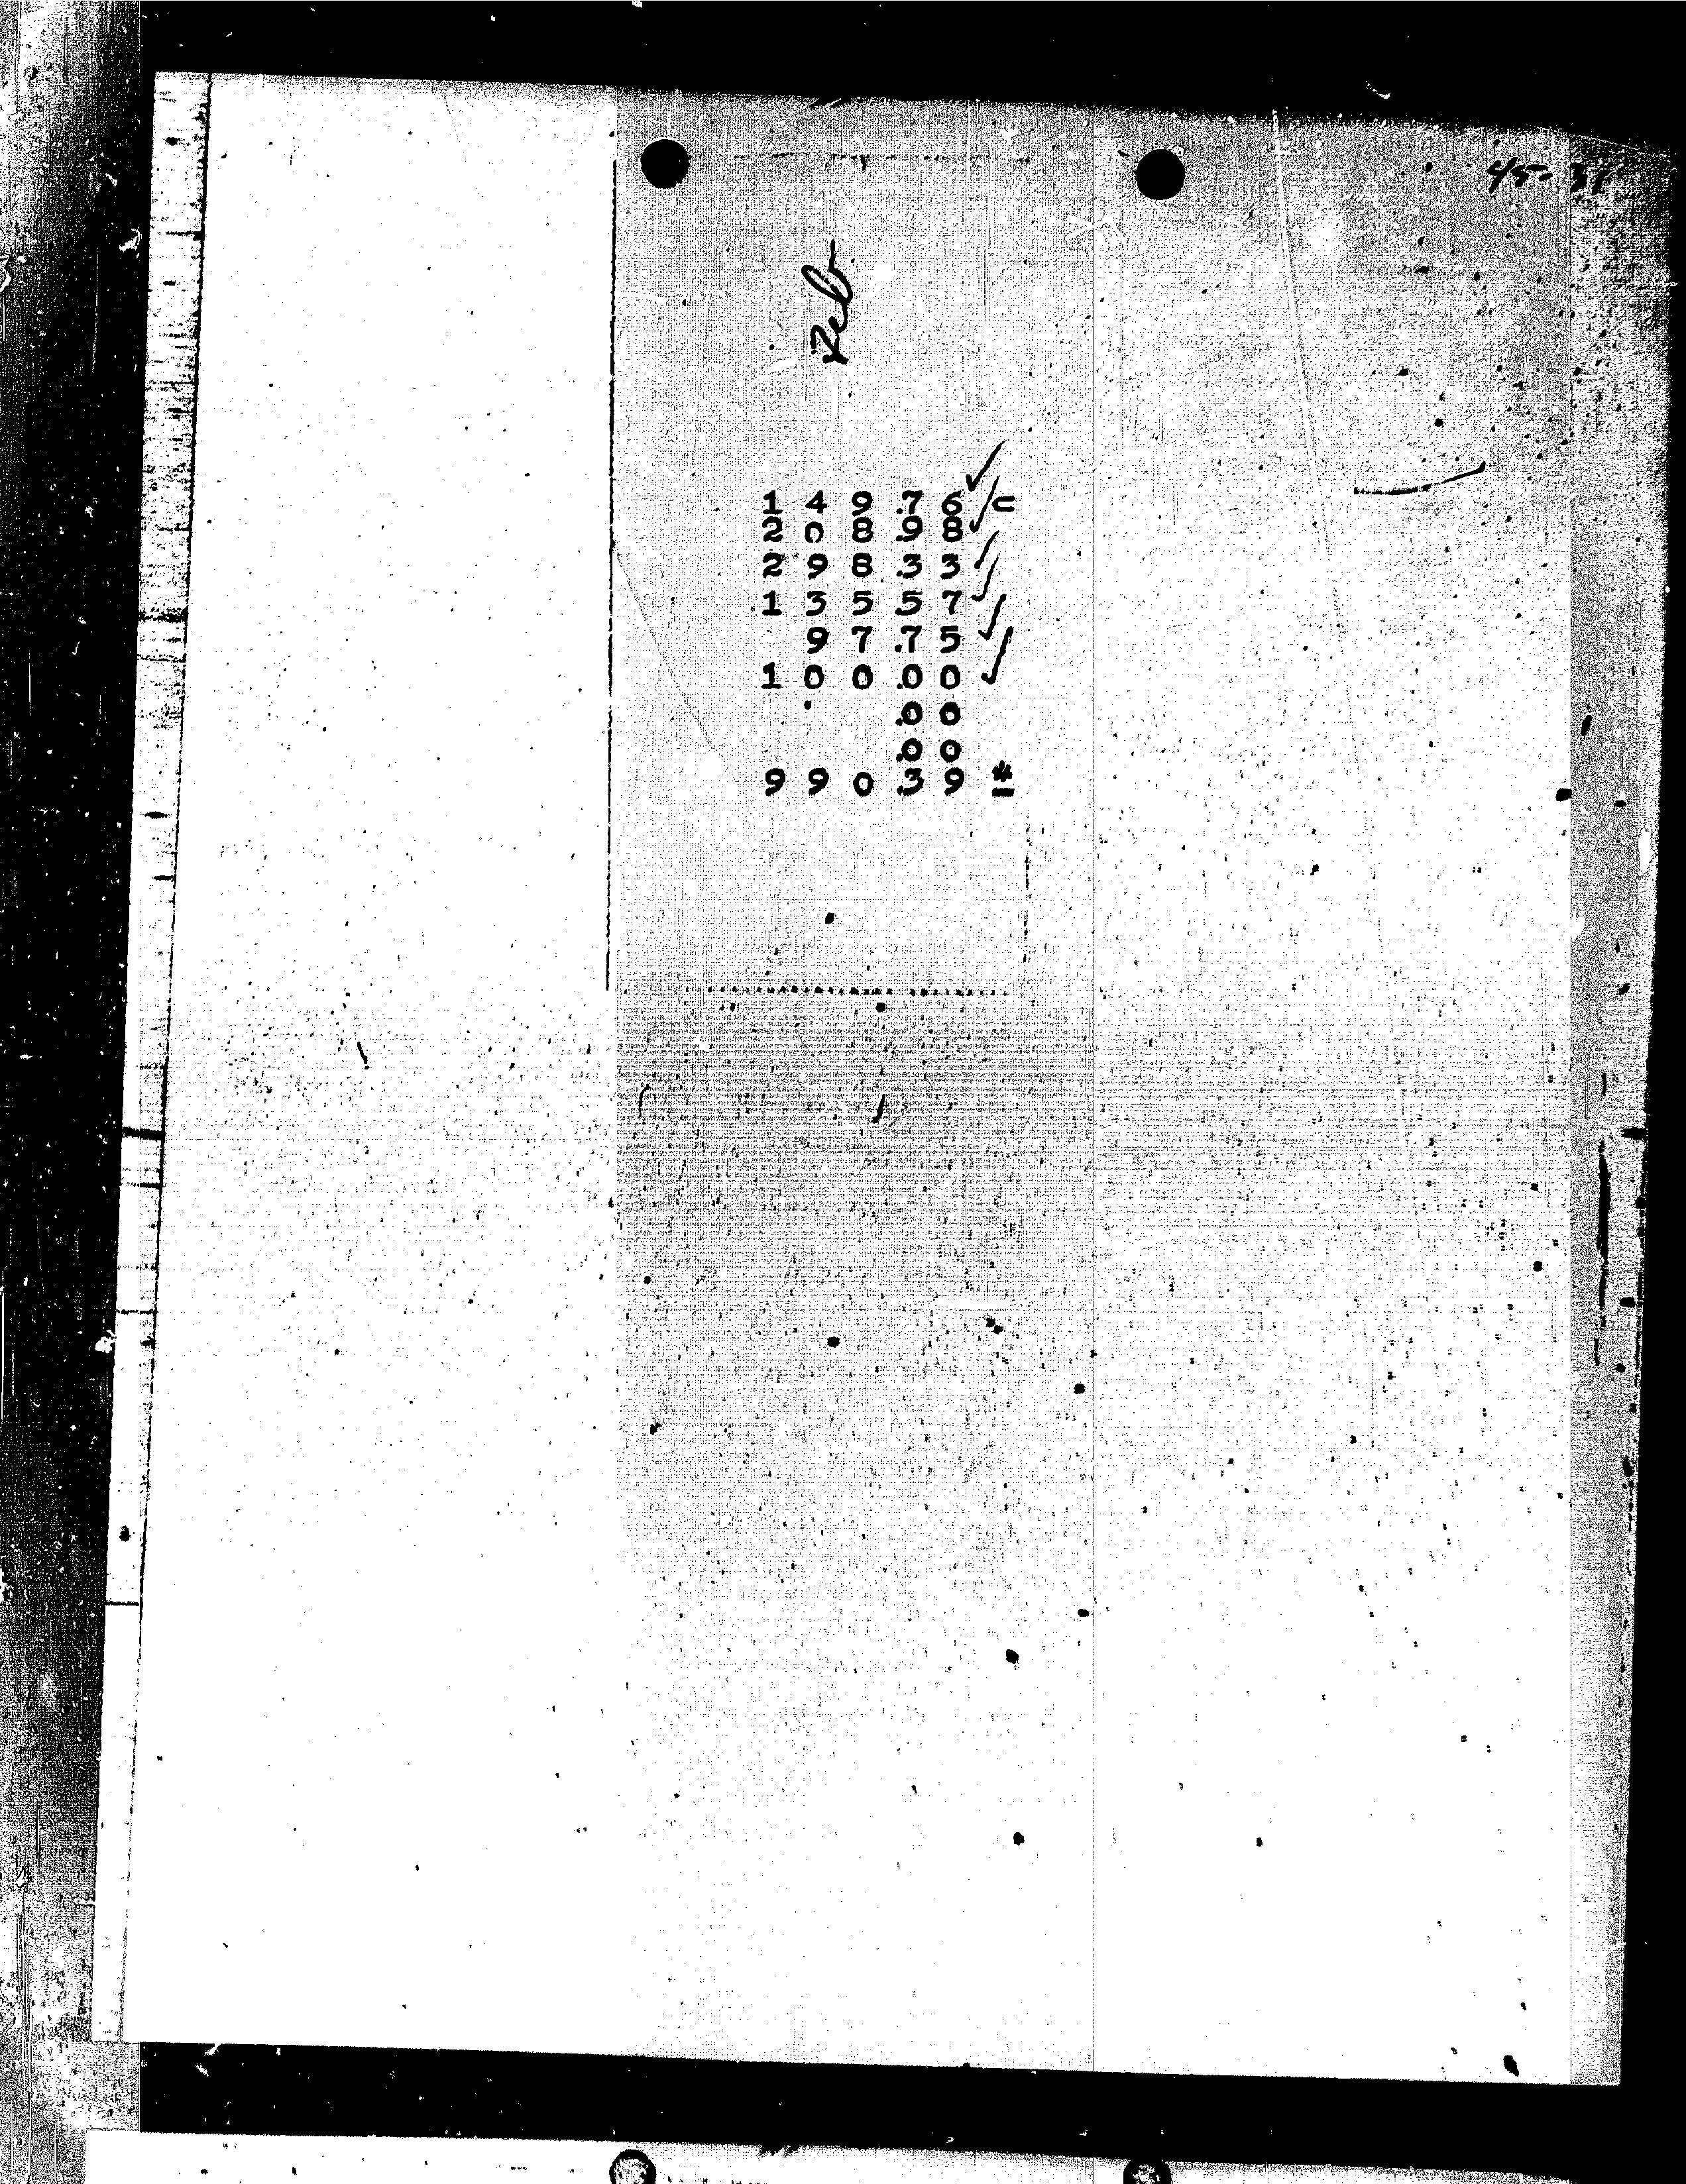 45-
Feb
149.76 c
208.98
298.33
135.57
97.75
100.00
.00
.00
990.39 *